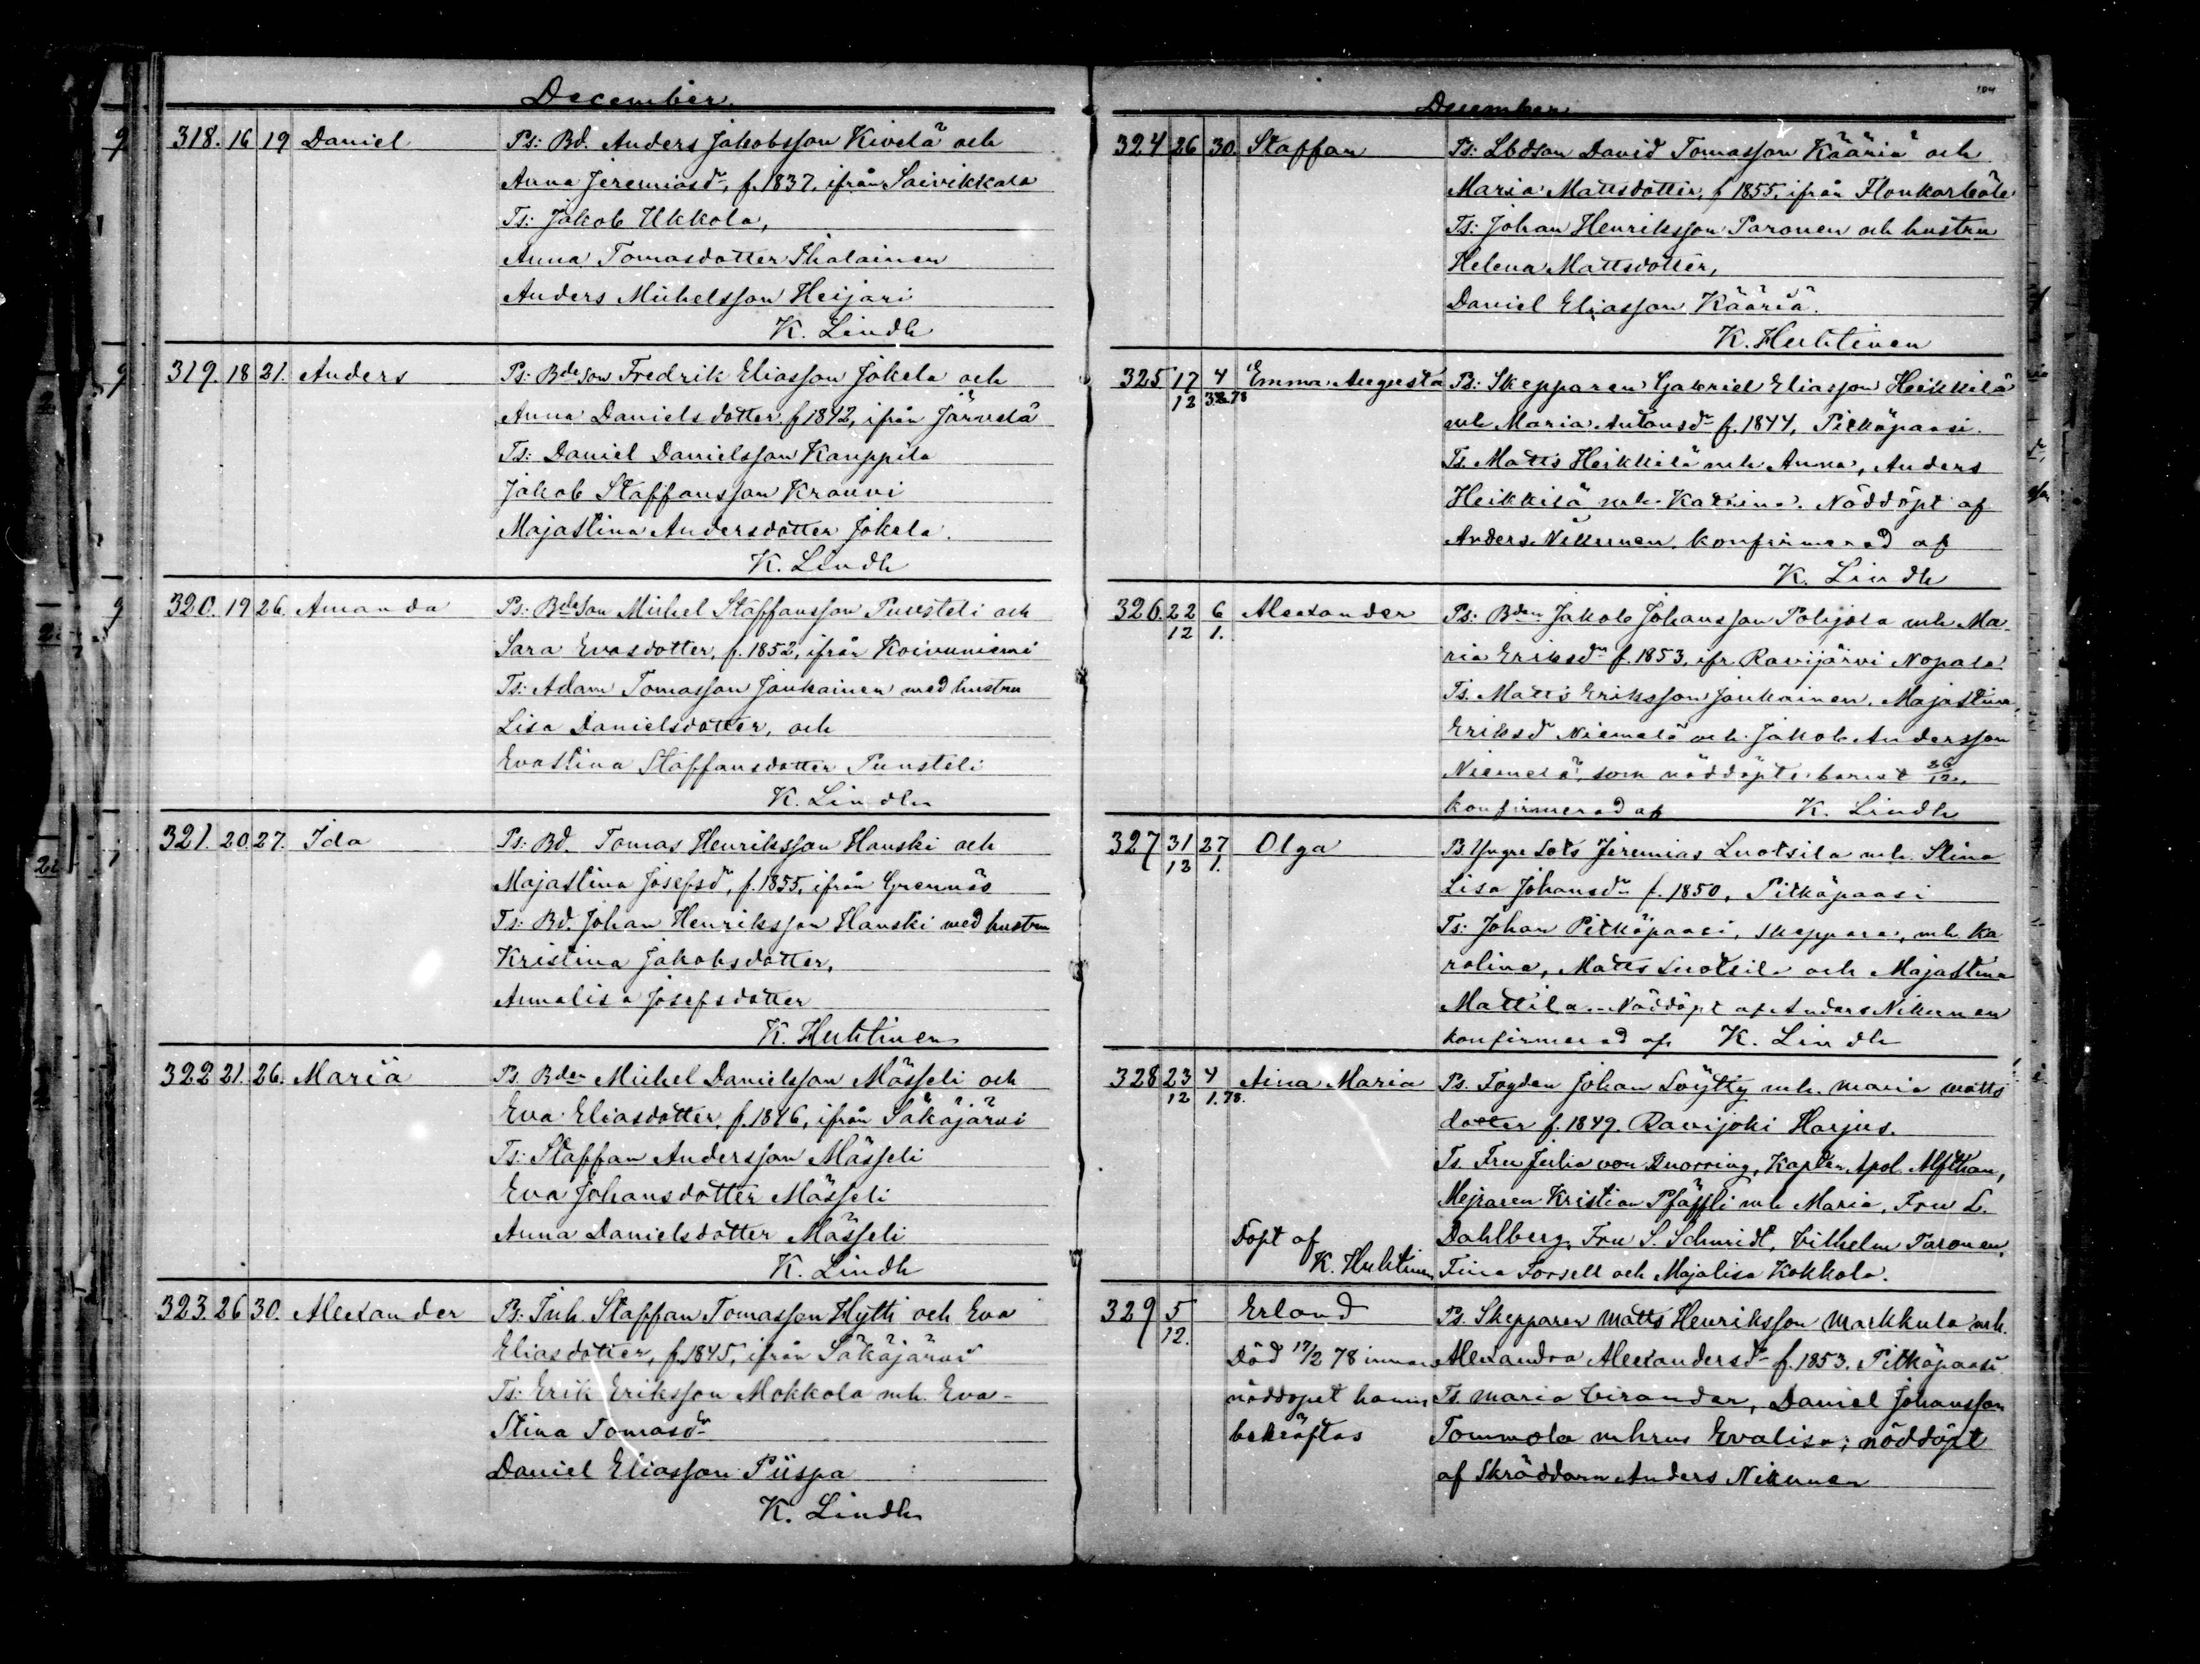 December.
318. 16 19 Daniel Ps: Bd. Anders Jakobsson Kivelä och
Anna Jeremiasdr, f. 1837, ifrån Saivikkala
Ts: Jakob Ukkola,
Anna Tomasdotter Ihalainen
Anders Michelsson Heijari
K. Lindh
319. 18 21. Anders Ps: Bdeson Fredrik Eliasson Jokela och
Anna Danielsdotter f 1842, ifrån Järvelä
Ts: Daniel Danielsson Kauppila
Jakob Staffansson Krouvi
Majastina Andersdotter Jokela.
K. Lindh
320. 19 26. Amanda Ps: Bdeson Michel Staffansson Puusteli och
Sara Evasdotter, f. 1852, ifrån Koivuniemi
Ts: Adam Tomasson Jaukainen med hustru
Lisa Danielsdotter, och
Evastina Staffansdotter Puusteli
K. Lindh
321. 20. 27. Ida Ps: Bd. Tomas Henriksson Hanski och
Majastina Josefsdr, f. 1855, ifrån Grennäs
Ts: Bd. Johan Henriksson Hanski med hustru
Kristina Jakobsdotter,
Annalisa Josefsdotter
K. Huhtinen
322 21. 26. Maria Ps. Bden Michel Danielsson Mässeli och
Eva Eliasdotter, f. 1846, ifrån Säkäjärvi
Ts: Staffan Andersson Mässeli
Eva Johansdotter Mässeli
Anna Danielsdotter Mässeli
K. Lindh
323. 26 30. Alexander Ps: Inh. Staffan Tomasson Hytti och Eva
Eliasdotter, f. 1845, ifrån Säkäjärvi
Ts: Erik Eriksson Mokkola mh. Eva-
Stina Tomasdr
Daniel Eliasson Piispa
K. Lindh
104
December
324 26 30. Staffan Ps: Lbdson David Tomasson Kääriä och
Maria Mattsdotter, f 1855, ifrån
Ts: Johan Henriksson Paronen och hustru
Helena Mattsdotter,
Daniel Eliasson Kääriä.
K. Huhtinen
325 17/12 4 78 Emma Augusta Ps: Skepparen Gabriel Eliasson Heikkilä
mh Maria Antonsdr f. 1844, Pitkäpaasi.
Ts. Matts Heikkilä mh Anna, Anders
Heikkilä mh. Katrina. Nöddöpt af
Anders Nikunen. konfirmerad af
K. Lindh
326. 22/12 6/1. Alexander Ps: Bden Jakob Johansson Pohjola mh Ma-
ria Eriksdr f. 1853, ifr. Ravijärvi Nopala
Ts. Matts Eriksson Jaukainen, Majastina
Eriksd Niemelä och Jakob Andersson
Niemelä, som nöddöpte barnet 26/12,
konfirmerad af K. Lindh
327 31/12 27/1. Olga Ps. Yngre Lots Jeremias Luotsila mh. Stina
Lisa Johansdr f. 1850, Pitkäpaasi
Ts: Johan Pitkäpaasi, skeppare, mh Ka
rolina, Matts Luotsila och Majastina
Mattila. Nöddöpt af Anders Nikunen
konfirmerad af K. Lindh
328 23/12 4/1.78. Aina Maria Ps. Fogden Johan Löytty mh. Maria Matts
dotter f. 1849. Ravijoki Harjus.
Ts. Fru Julia von Knorring, Kapten Apol. Alfthan,
Mejraren Kristian Pfäffli mh Maria, Fru L.
Döpt af Dahlberg, Fru S. Schmidt, Vilhelm Paronen,
K. Huhtinen Fina Forsell och Majalisa Kokkola.
329 5/12. Erland Ps. Skepparen Matts Henriksson Markkula mh.
Död 17/2 78 innan Alexandra Alexandersdr f. 1853. Pitkäpaasi
nöddopet hann Ts. Maria Virander, Daniel Johansson
bekräftas Tommola mhru Evalisa; nöddöpt
af Skräddarn Anders Nikunen